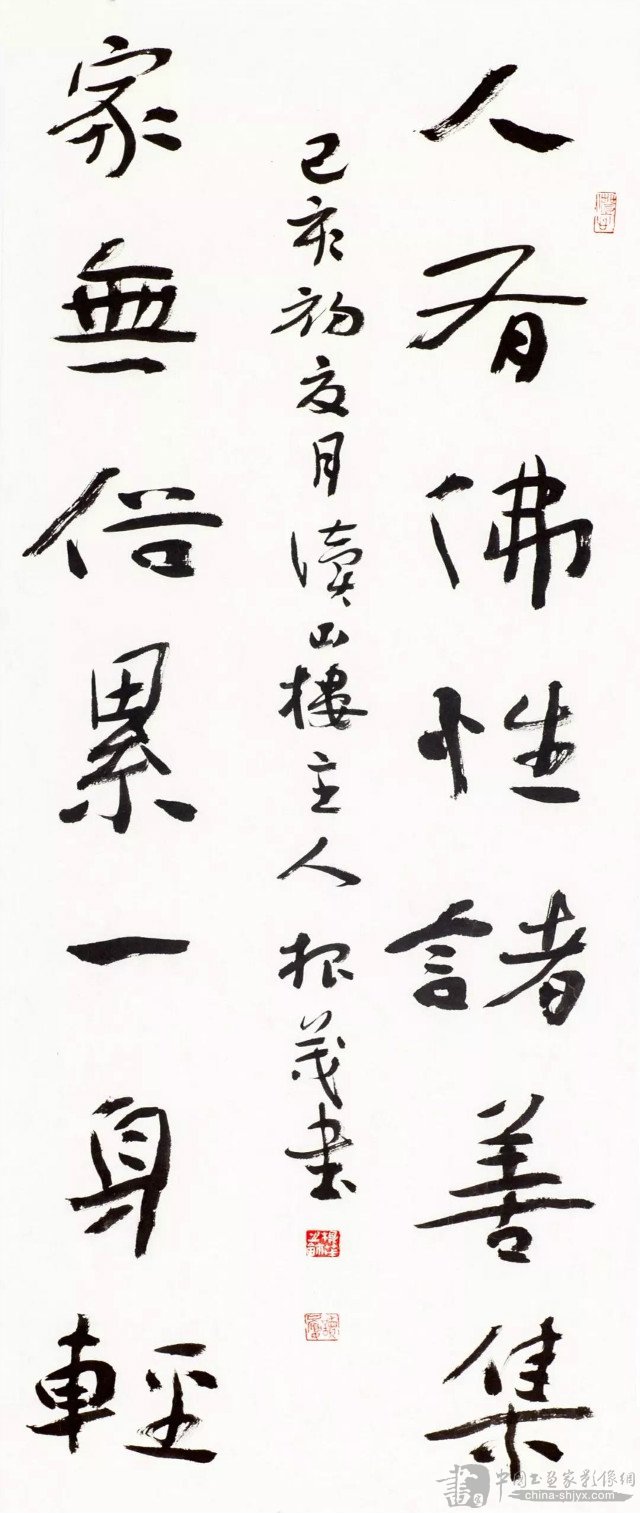 人有佛性諸善集
己亥初夏月瀆山樓主人根茂書
家無俗累一身輕
書 中国书画家影像網
china-shjyx.com